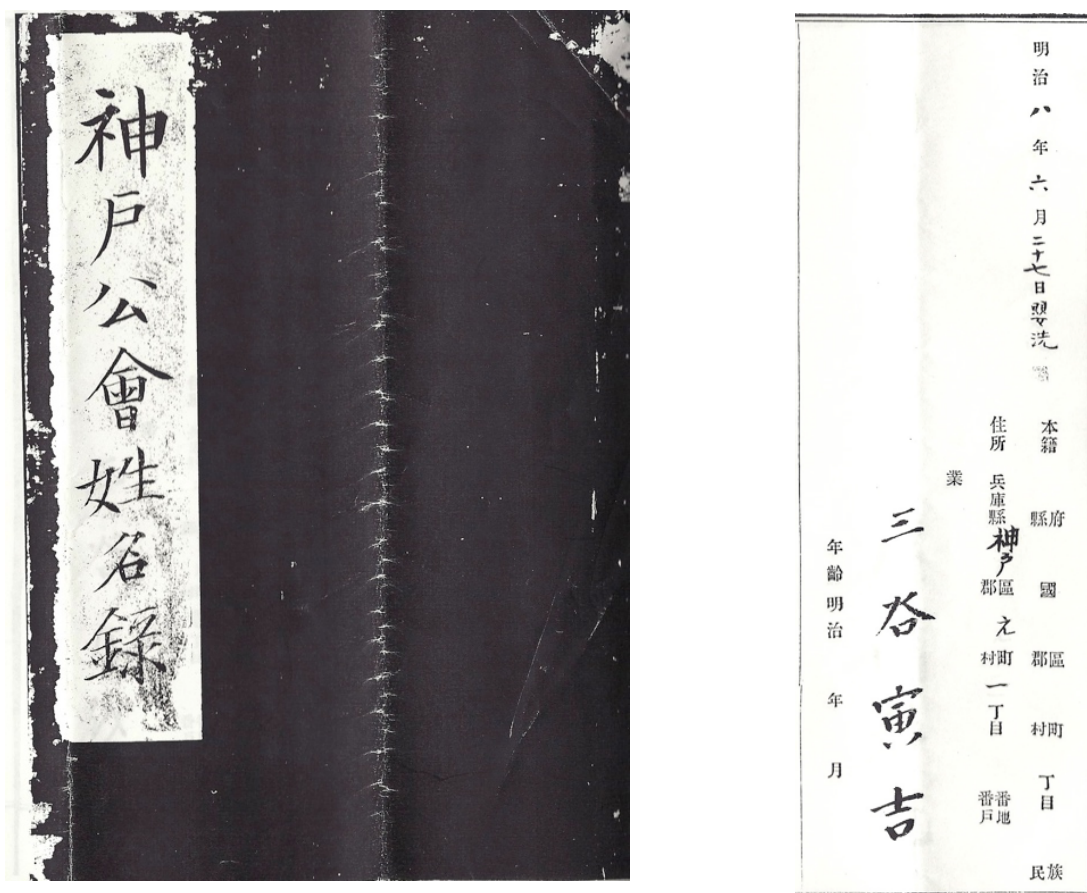 神戶公會姓名錄
明治八年六月二十七日嬰洗
本籍 府縣 國 區郡 町村 丁目 族民
住所 兵庫縣神戶區郡 え町村 一丁目 番地番戶
業
三谷寅吉
年齡明治 年 月